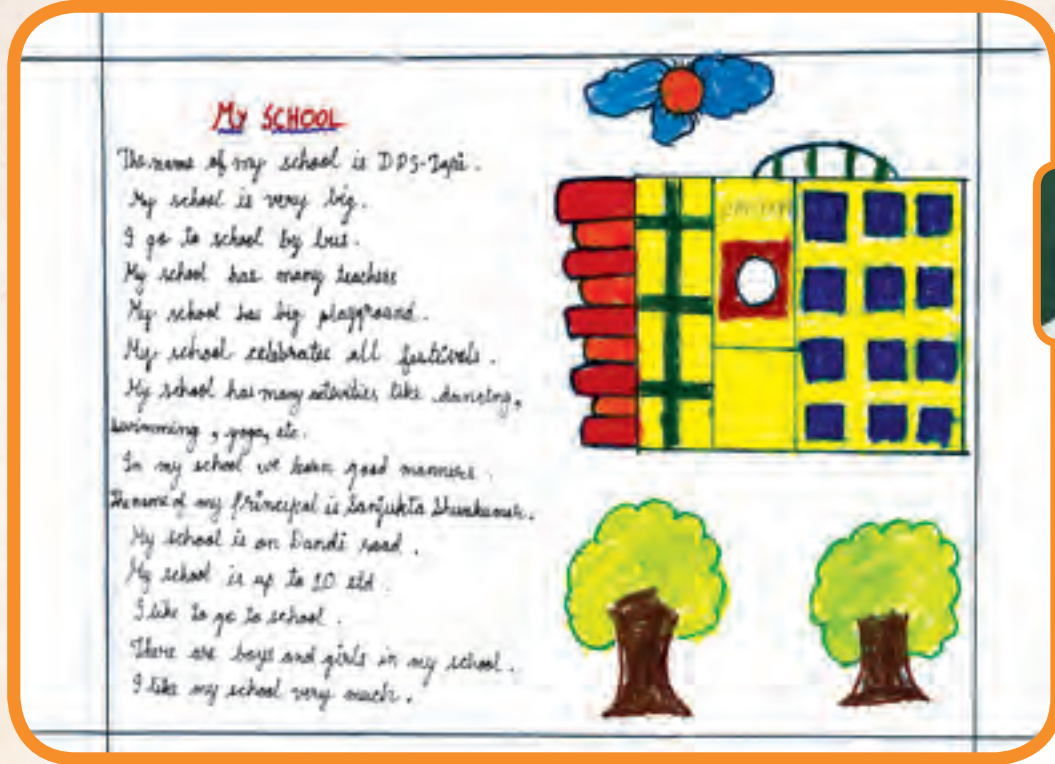 My SCHOOL
The name of my school is DPS-Tapi.
My school is very big.
I go to school by bus.
My school has many teachers
My school has big playground.
My school celebrates all festivals.
My school has many activities like dancing,
swimming, yoga, etc.
In my school we learn good manners.
The name of my Principal is Sanjukta
My school is on Dandi road.
My school is up to 10 std.
I like to go to school.
There are boys and girls in my school.
I like my school very much.